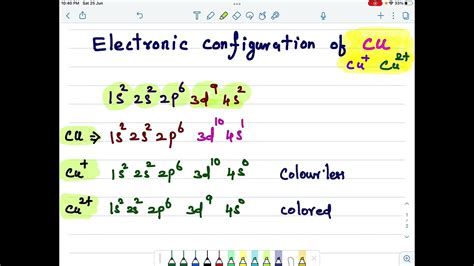 10:40 PM Sat 25 Jun
33%
Electronic configuration of Cu
Cu⁺ Cu²⁺
1s² 2s² 2p⁶ 3d⁹ 4s²
Cu ⇒ 1s² 2s² 2p⁶ 3d¹⁰ 4s¹
Cu⁺ 1s² 2s² 2p⁶ 3d¹⁰ 4s⁰ colourless
Cu²⁺ 1s² 2s² 2p⁶ 3d⁹ 4s⁰ colored